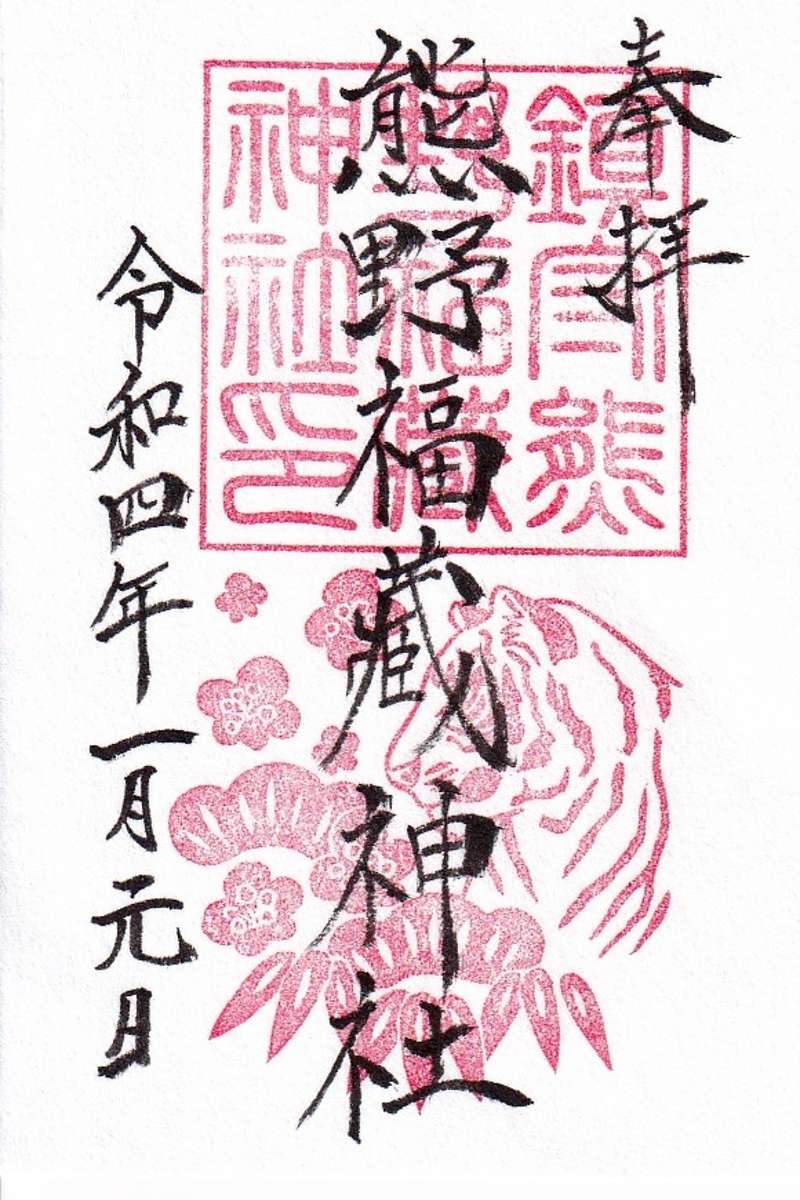 奉拝
熊野福藏神社
令和四年一月元日
鎮守熊
野福藏
神社印